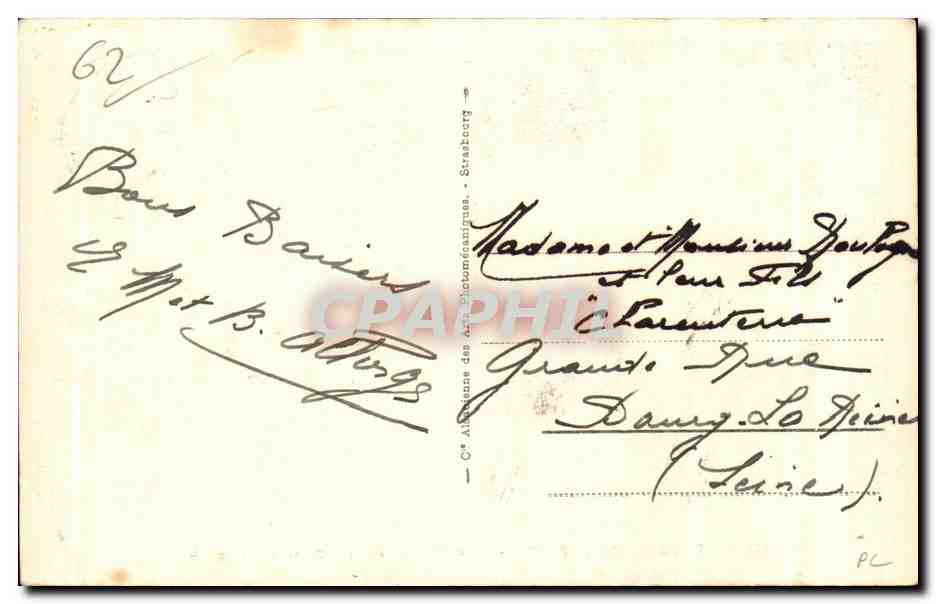 62
Bons Baisers
M et B.
— Cie Alsacienne des Arts Photomécaniques. - Strasbourg —
Madame et Monsieur
et leur Fils
"Charcuterie"
Grande Rue
Bourg-La Reine
(Seine).
CPAPHIL
PC